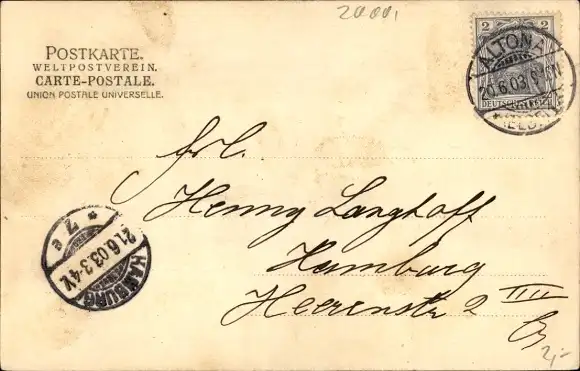 2000,
POSTKARTE.
WELTPOSTVEREIN.
CARTE-POSTALE.
UNION POSTALE UNIVERSELLE.
2 2
ALTONA
20.6.03
DEUTSCHES
Frl.
Henny Langhoff
Hamburg
Heerenstr 2 IIII
HAMBURG
21.6.03.3-4V.
* 7 e
2,-